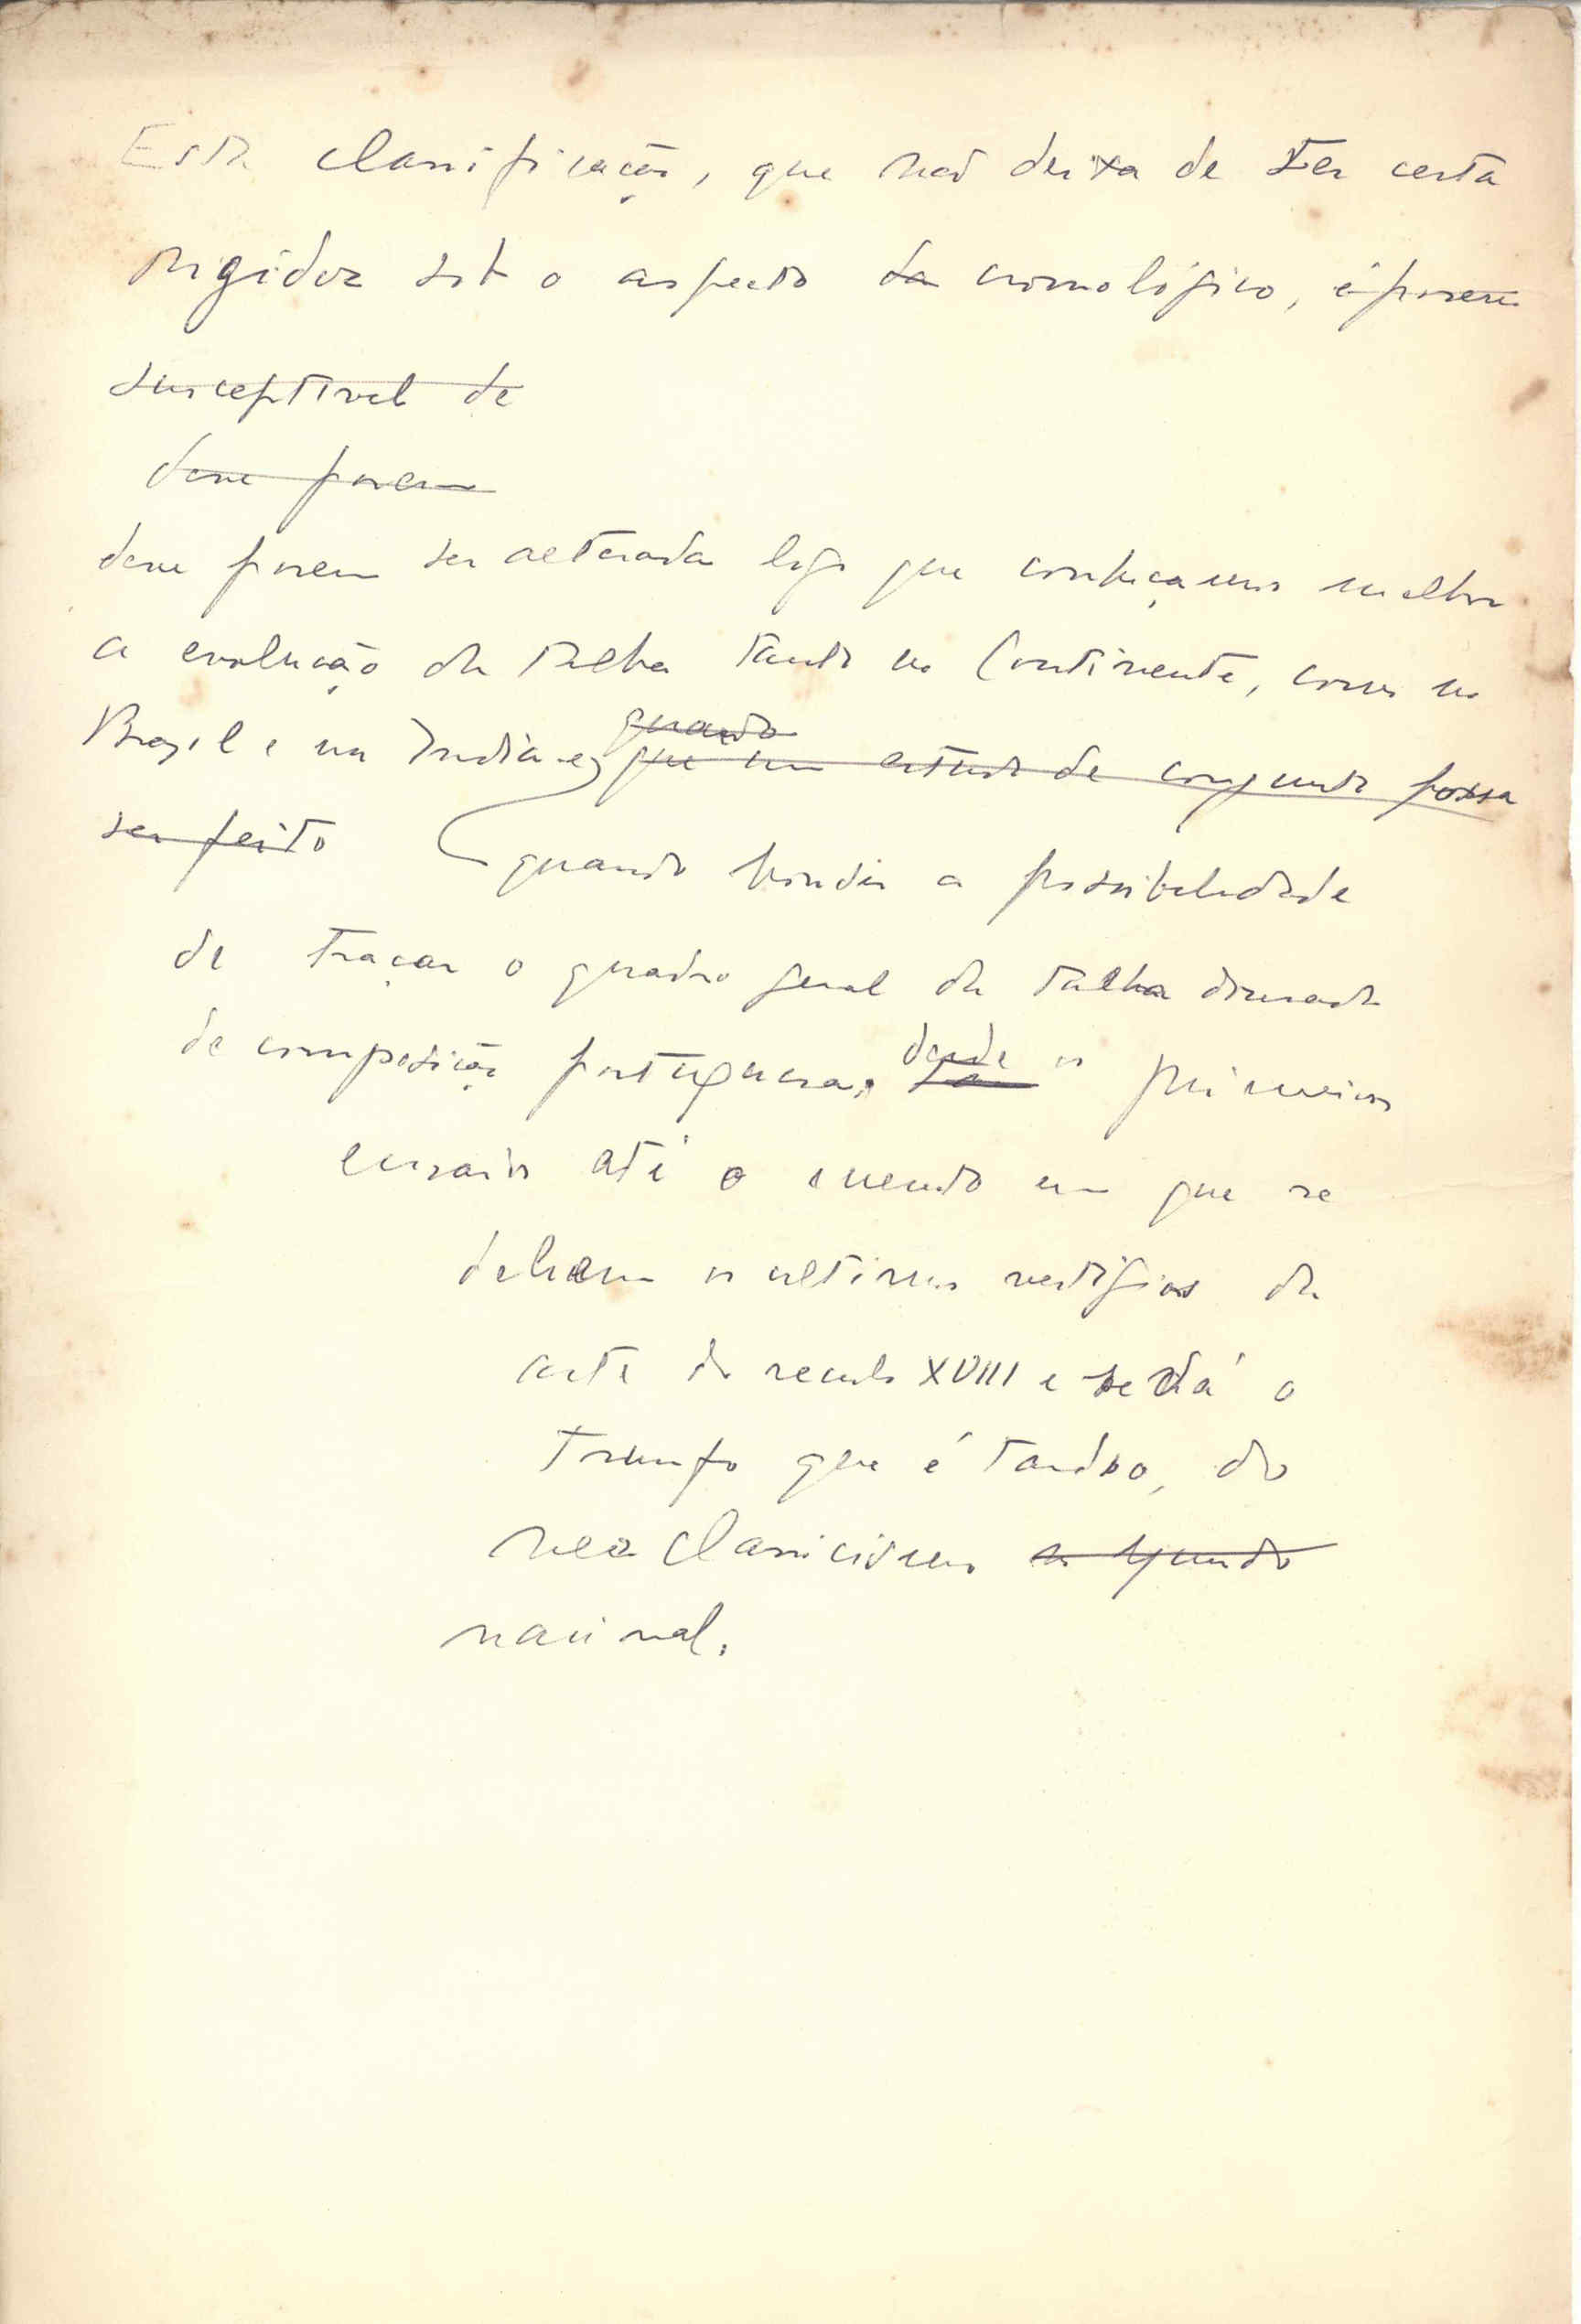 Esta classificação, que não deixa de ter certa
rigidez sob o aspecto da cronológico, é porem
susceptivel de
deve porem
deve porem ser alterada logo que conheçamos melhor
a evolução da talha tanto no Continente, como no
Brasil e na India e quando que um estudo de conjunto possa
ser feito quando houver a possibilidade
de traçar o quadro geral da talha dourada
de composição portuguesa, desde os primeiros
ensaios até o momento em que se
deluem os ultimos vestigios da
arte do seculo XVIII e se dá o
triunfo que é tardio, do
neo classicismo
nacional.